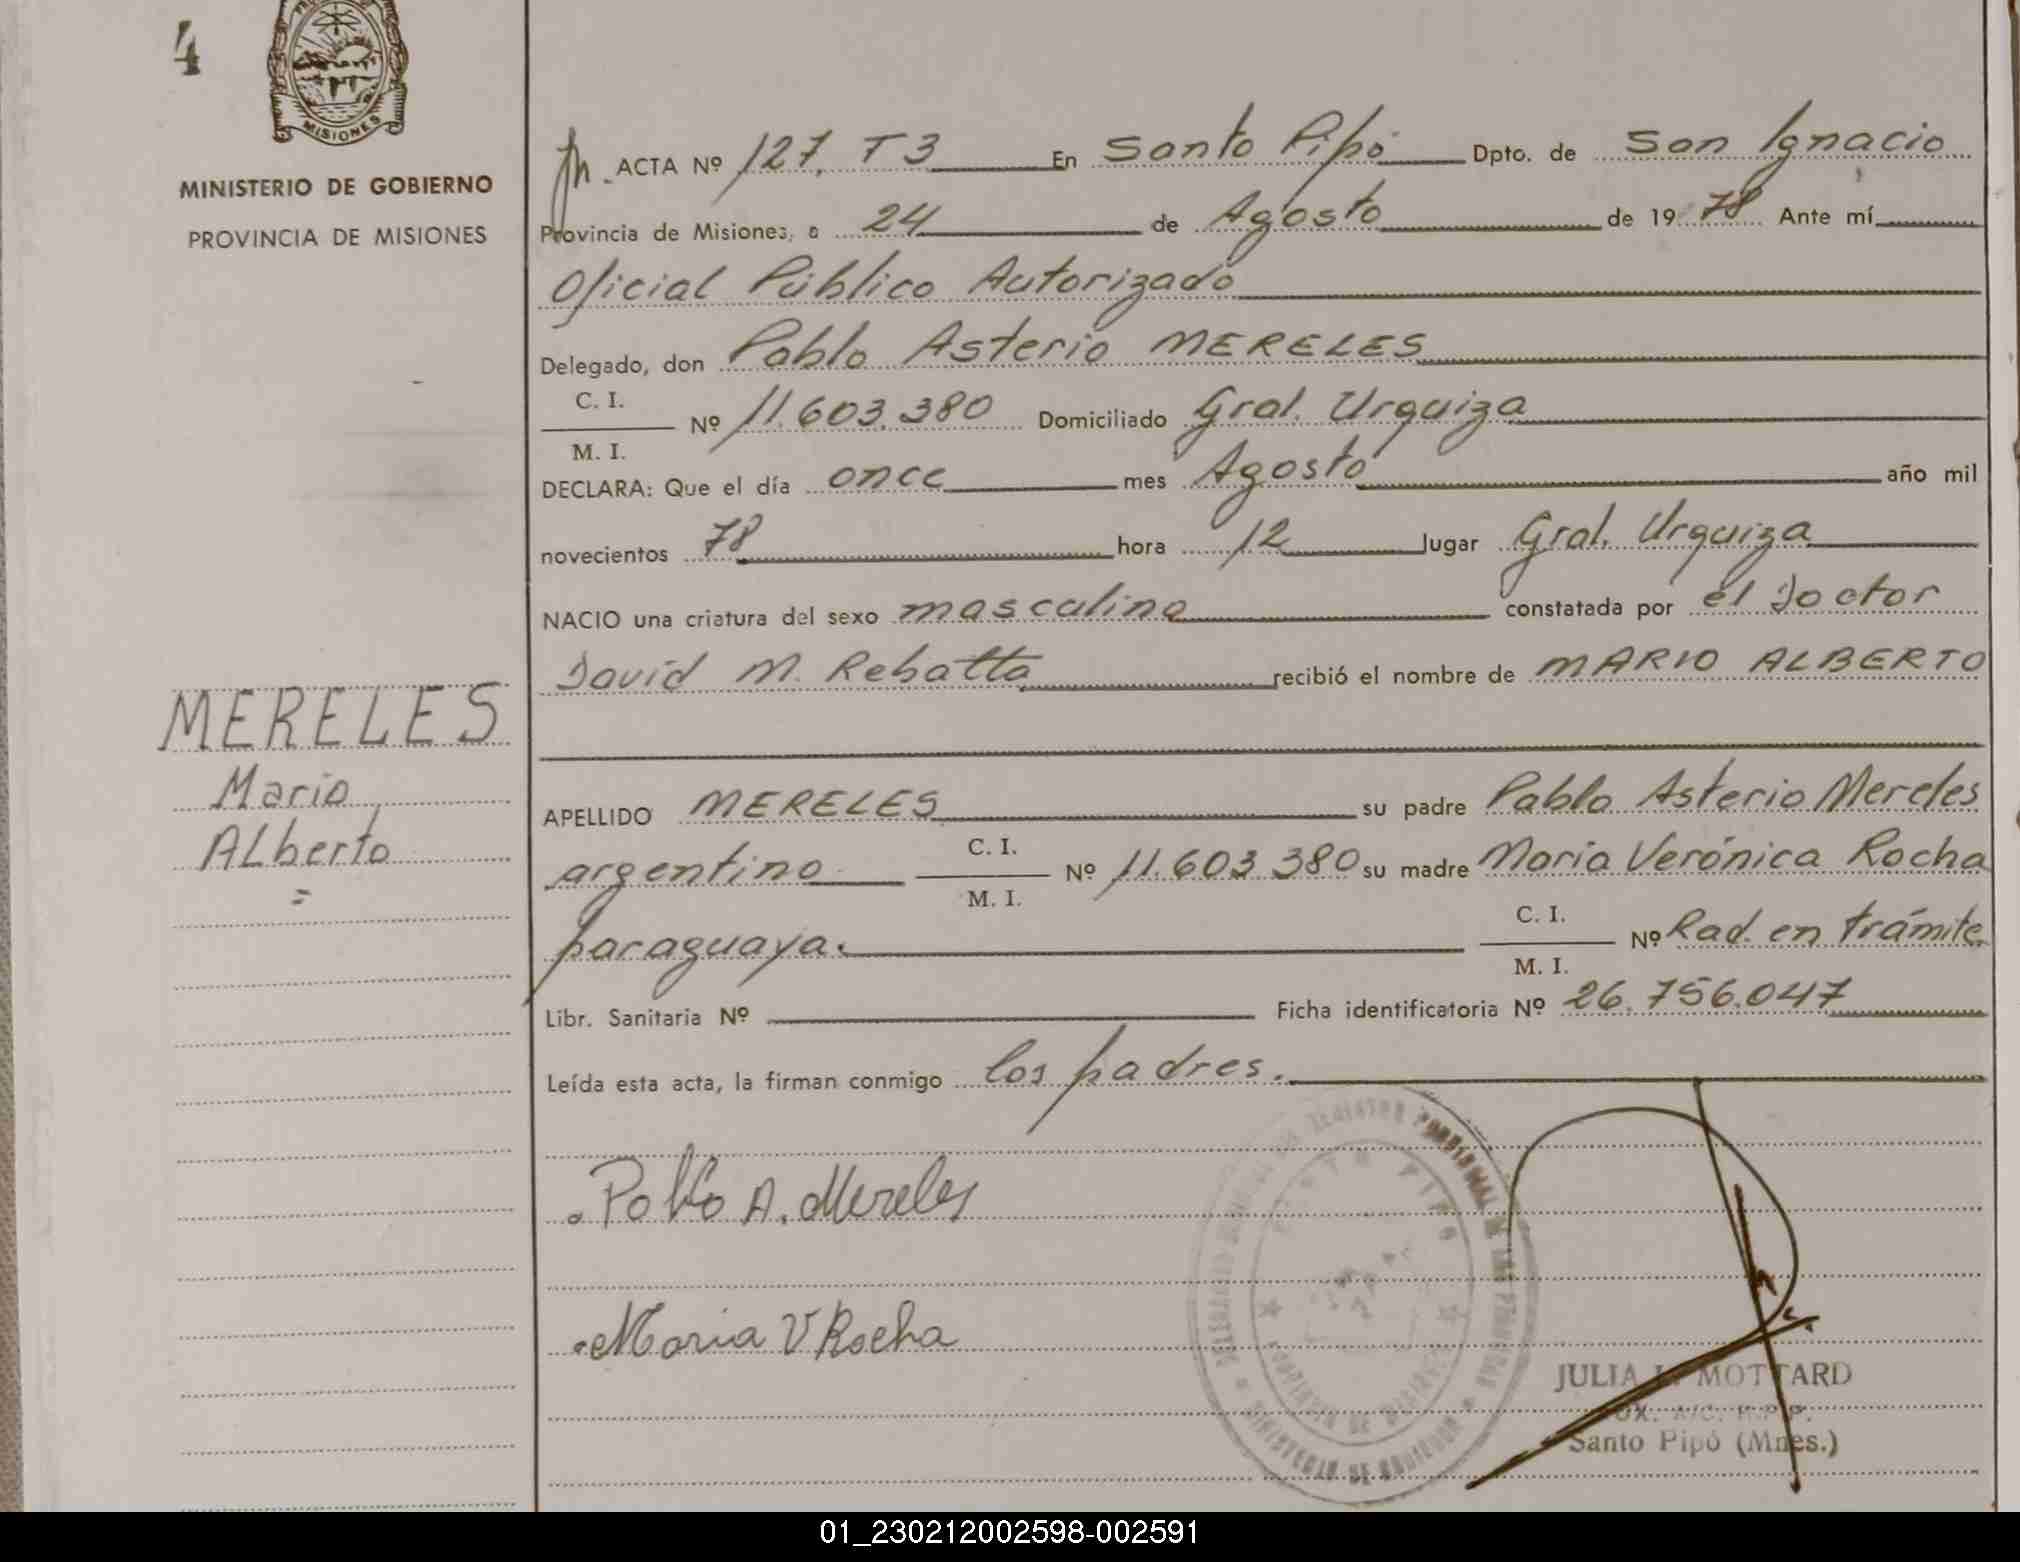 4
MISIONES
MINISTERIO DE GOBIERNO
PROVINCIA DE MISIONES
MERELES
Mario
ALberto
=
ACTA Nº 127, T3 En Santo Pipó Dpto. de San Ignacio
Provincia de Misiones, a 24 de Agosto de 19 78 Ante mí
Oficial Público Autorizado
Delegado, don Pablo Asterio MERELES
C. I.
M. I.
Nº 11.603.380 Domiciliado Gral. Urquiza
DECLARA: Que el día once mes Agosto año mil
novecientos 78 hora 12 lugar Gral. Urquiza
NACIO una criatura del sexo masculino constatada por el Doctor
David M. Rebatta recibió el nombre de MARIO ALBERTO
APELLIDO MERELES su padre Pablo Asterio Mereles
argentino C. I. M. I. Nº 11.603.380 su madre María Verónica Rocha
paraguaya. C. I. M. I. Nº Rad. en trámite
Libr. Sanitaria Nº Ficha identificatoria Nº 26.756.047
Leída esta acta, la firman conmigo los padres.
Pablo A. Mereles
Maria V Rocha
REGISTRO PROVINCIAL DE LAS PERSONAS
MINISTERIO DE GOBIERNO
JULIA MOTTARD
Santo Pipó (Mnes.)
01_230212002598-002591